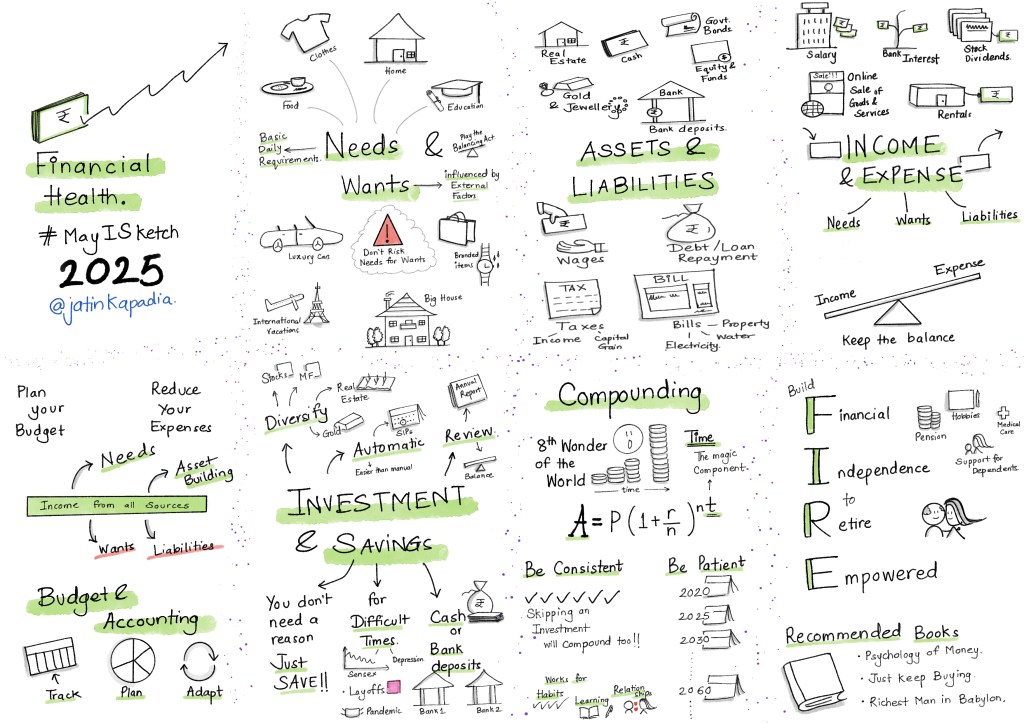 ₹
Financial
Health.
# MayISketch
2025
@jatinkapadia.
Clothes
Home
Food
Education
Basic
Daily
Requirements.
Needs &
Play the
Balancing Act
Wants
influenced by
External
Factors
Luxury Car
Don't Risk
Needs for Wants
Branded
items
International
Vacations
Big House
Real
Estate
₹
Cash
Govt.
Bonds
₹
Equity &
Funds
Gold
& Jewellery
Bank
Bank deposits.
ASSETS &
LIABILITIES
Wages
₹
Debt/Loan
Repayment
TAX
Taxes
Income
Capital
Gain
BILL
Bills — Property
Water
Electricity.
Salary
Bank Interest
Stock
Dividends.
Sale!!!
Online
Sale of
Goods &
Services
Rentals
INCOME
& EXPENSE
Needs
Wants
Liabilities
Income
Expense
Keep the balance
Plan
your
Budget
Reduce
Your
Expenses
Needs
Asset
Building
Income from all Sources
Wants
Liabilities
Budget &
Accounting
Track
Plan
Adapt
Stocks
MF
Real
Estate
Diversify
Gold
SIPs
Automatic
Easier than manual
Annual
Report
Review
Balance
INVESTMENT
& SAVINGS
You don't
need a
reason
Just
SAVE!!
for
Difficult
Times.
Sensex
Depression
Layoffs
: Pandemic
₹
Cash
or
Bank
deposits
Bank 1
Bank 2
Compounding
8th Wonder
of the
World
time
Time
The magic
Component.
A = P (1 + r/n)^nt
Be Consistent
Skipping an
Investment
will Compound too!!
Works for
Habits
Learning
Relationships
Be Patient
2020
2025
2030
2060
Build
Financial
Independence
to
Retire
Empowered
Pension
Hobbies
Medical
Care
Support for
Dependents.
Recommended Books
• Psychology of Money.
• Just Keep Buying.
• Richest Man in Babylon.